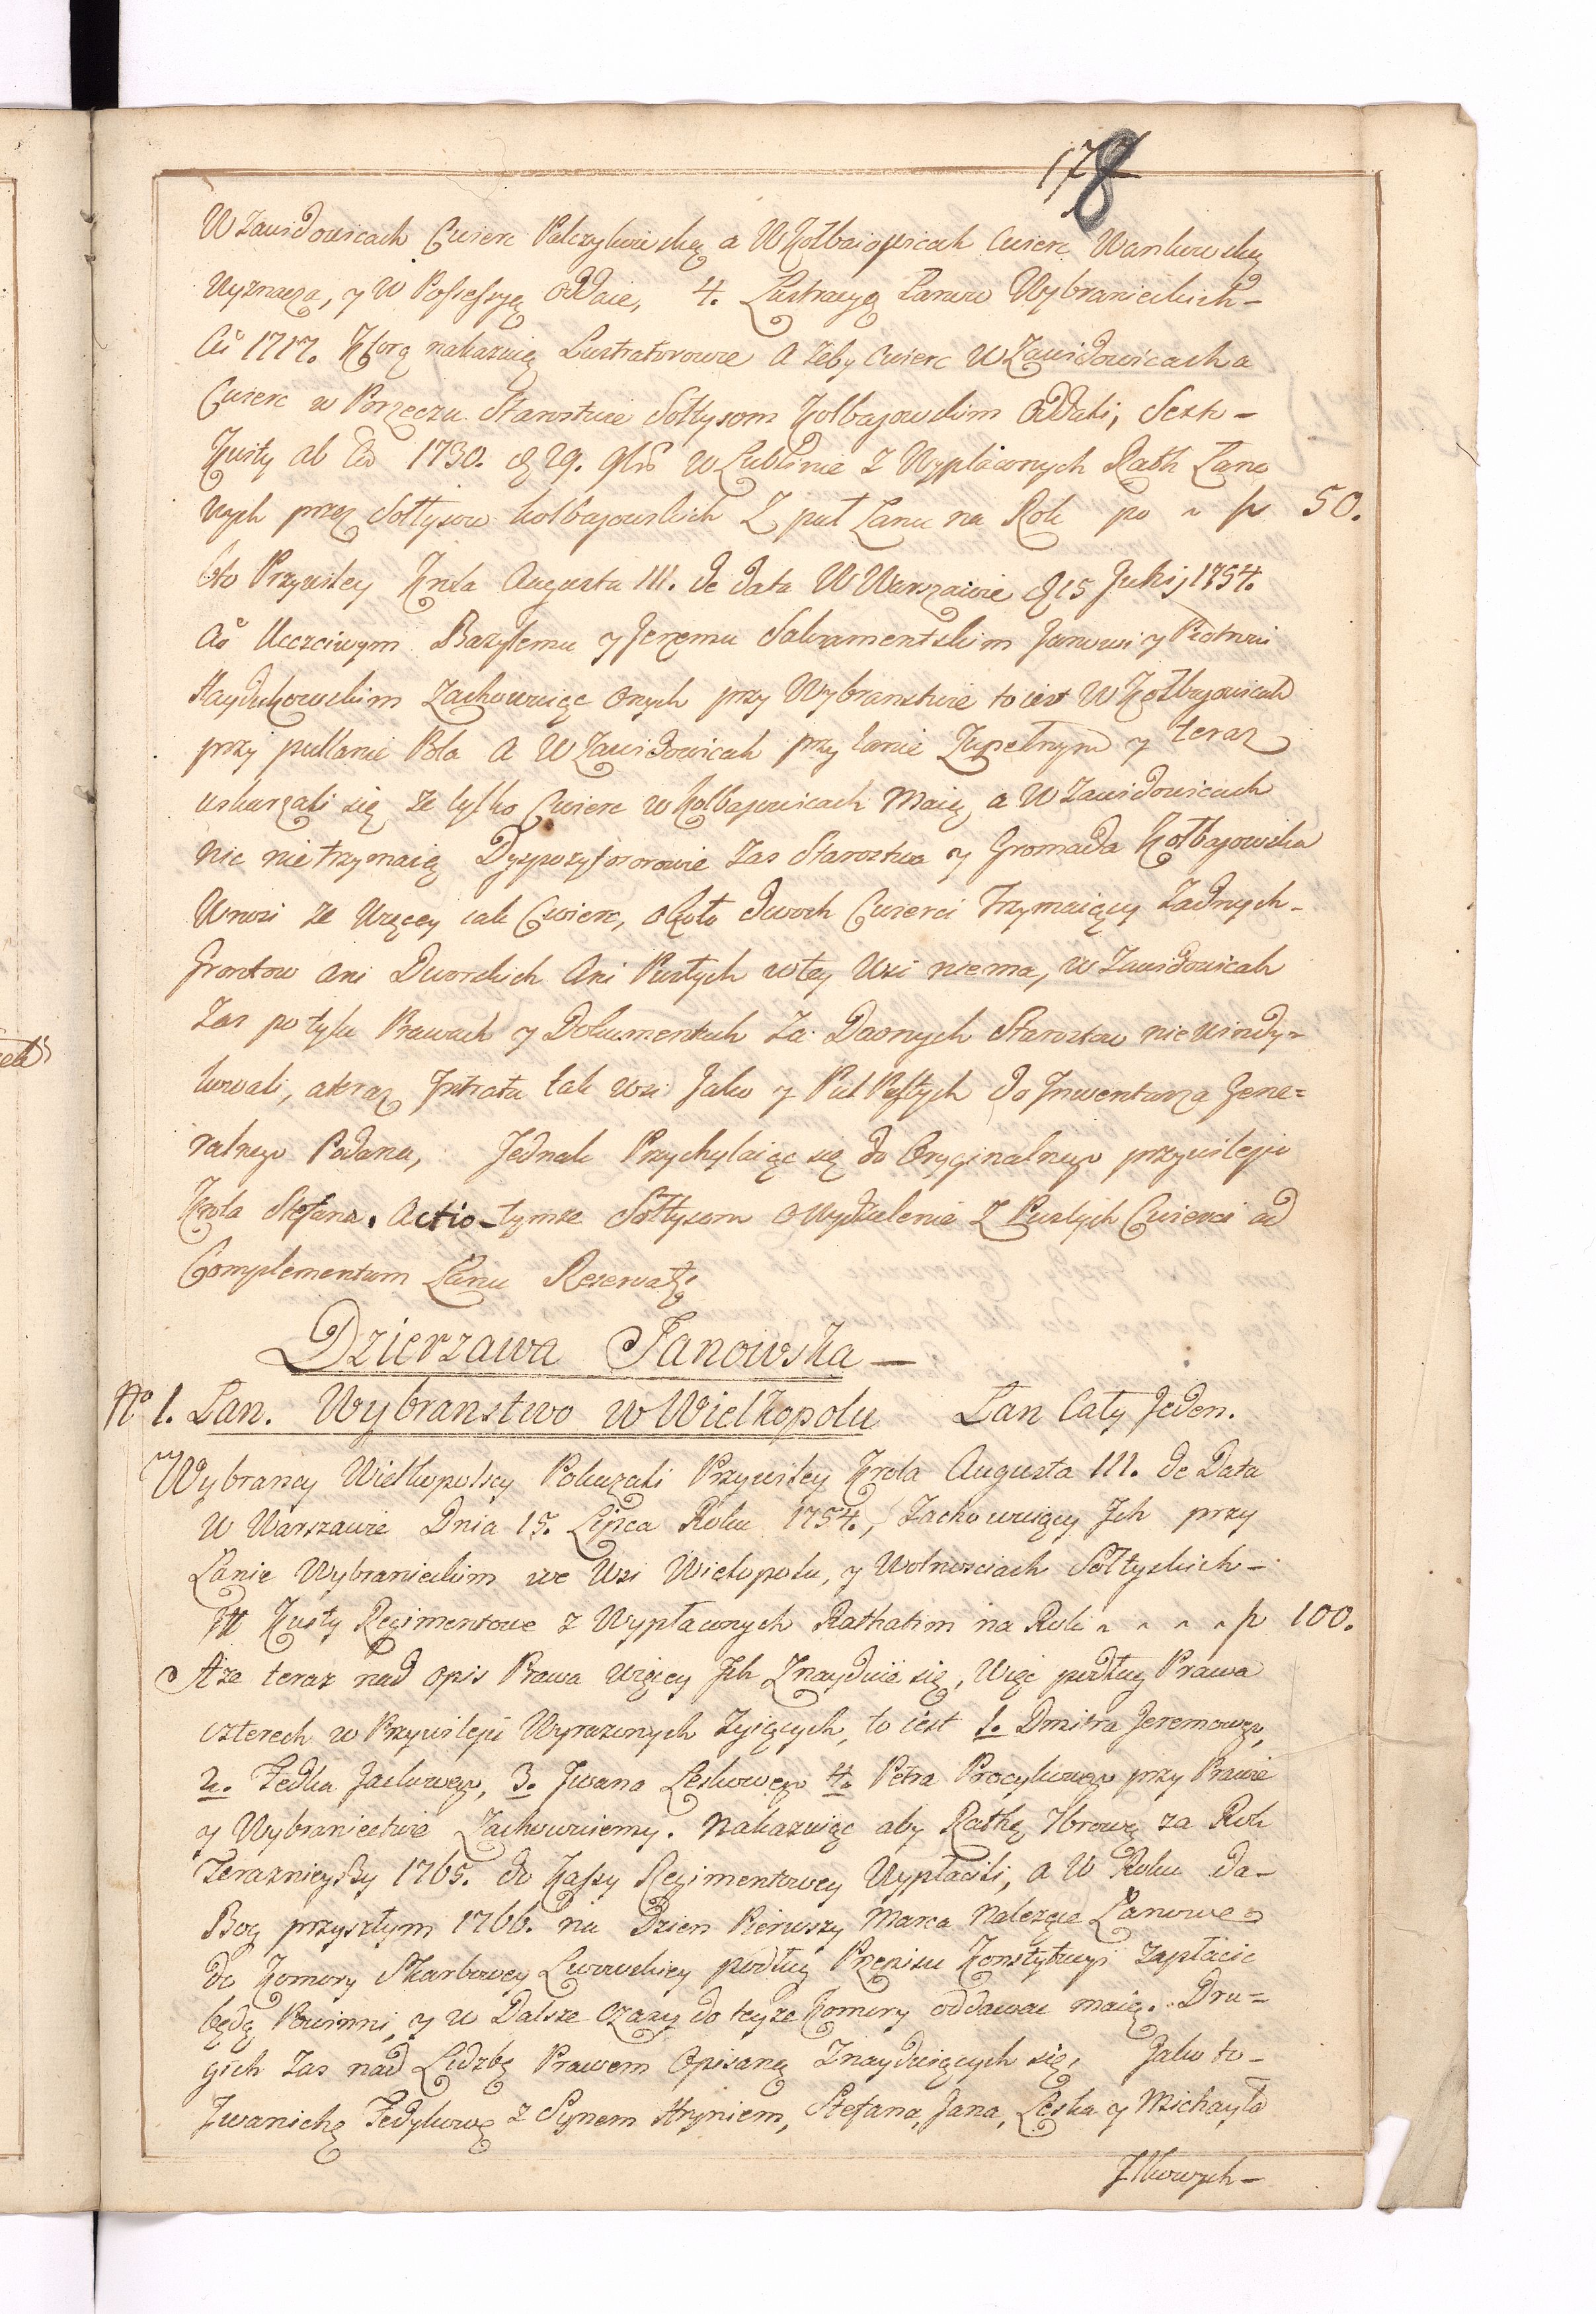 178
W Zawidowicach Cwierc Palczykowską a W Kołbaiowicach Cwierc Wankowską
Wyznacza, y W Possessyą oddaie, 4. Lustracyą Łanow Wybranieckich-
Aō 1717. Ktorą nakazuią Lustratorowie Ażeby Cwierc W Zawidowicach a
Cwierc w Porzeczu Starostwie Sołtysom Kołbajowskim oddali, Sexto-
Kwity ab Aō 1730. d 29. 9bris w Lublinie z Wypłaconych Rath Łano
wych przez Sołtysow kołbajowskich Z puł Łanu na Rok po ~ fp 50.
6to Przywiley Krola Augusta III. de data W Warszawie d 15 Julij 1754.
Aō Uczciwym Bazylemu y Jerzemu Sakramentskim Janowi y Piotrowi
Haydukowskim Zachowuiąc onych przy Wybranstwie to iest W Kołbajowicach
przy pułłanie Pola a W Zawidowicach przy łanie Zupełnym y teraz
uskarzali się ze tylko Cwierc w Kołbajowicach Maią, a W Zawidowicach
nic nie trzymaią Dyspozytorowie zas Starostwa y Gromada Kołbajowska
Wnosi ze Więcey iak Cwierc, około dwoch Cwierci Trzymaiący Zadnych-
Grontow ani Dworskich Ani Pustych w tey Wsi niema, w Zawidowicach
Zas po tylu Prawach y Dokumentach Za Dawnych Starostow nie windy-
kowali, a teraz Intrata tak wsi Jako y Pul Pustych do Inwentarza Gene=
ralnego Podana, Jednak Przychylaiąc się do Oryginalnego przywileju
Krola Stefana. Actio-tymze Sołtysom o Wydzielenie Z Pustych Cwierci ad
Complementum Łanu Reservat̄.
Dzierzawa Janowska-
No 1. Łan. Wybranstwo w Wielkopolu Łan Cały Jeden.
Wybrancy Wielkopolscy Pokazali Przywiley Krola Augusta III. de Data
W Warszawie Dnia 15. Lipca Roku 1754., Zachowuiący Jch przy
Łanie Wybranieckim we Wsi Wielopolu, y Wolnosciach Sołtyskich-
Itt Kwity Regimentowe z Wypłaconych Rathatim na Rok ~ ~ ~ ~ fp 100.
A ze teraz nad opis Prawa więcey Jch Znayduie się, Więc podług Prawa
czterech w Przywileju Wyrazonych Zyiących, to iest 1. Dmitra Jeremowego,
2. Fedka Jackowego, 3. Jwana Leskowego 4. Petra Procykowego przy Prawie
y Wybraniectwie Zachowuiemy. Nakazuiąc aby Rathę 7browę za Rok
Teraznieyszy 1765. do Kassy Regimentowey Wypłacili, a W Roku da-
Bog przyszłym 1766. na Dzien Pierwszy Marca Nalezące Łanowe
do Komory Skarbowey Lwowskiey podług Przepisu Konstytucyi zapłacic
będą Powinni, y w Dalsze czasy do teyze Komory oddawac maią. Dru=
gich zas nad Liczbę Prawem Opisaną Znayduiących się, Jako to-
Jwanichę Fedykowę z Synem Hryniem, Stefana, Jana, Leska y Michayła
Jlkowych-